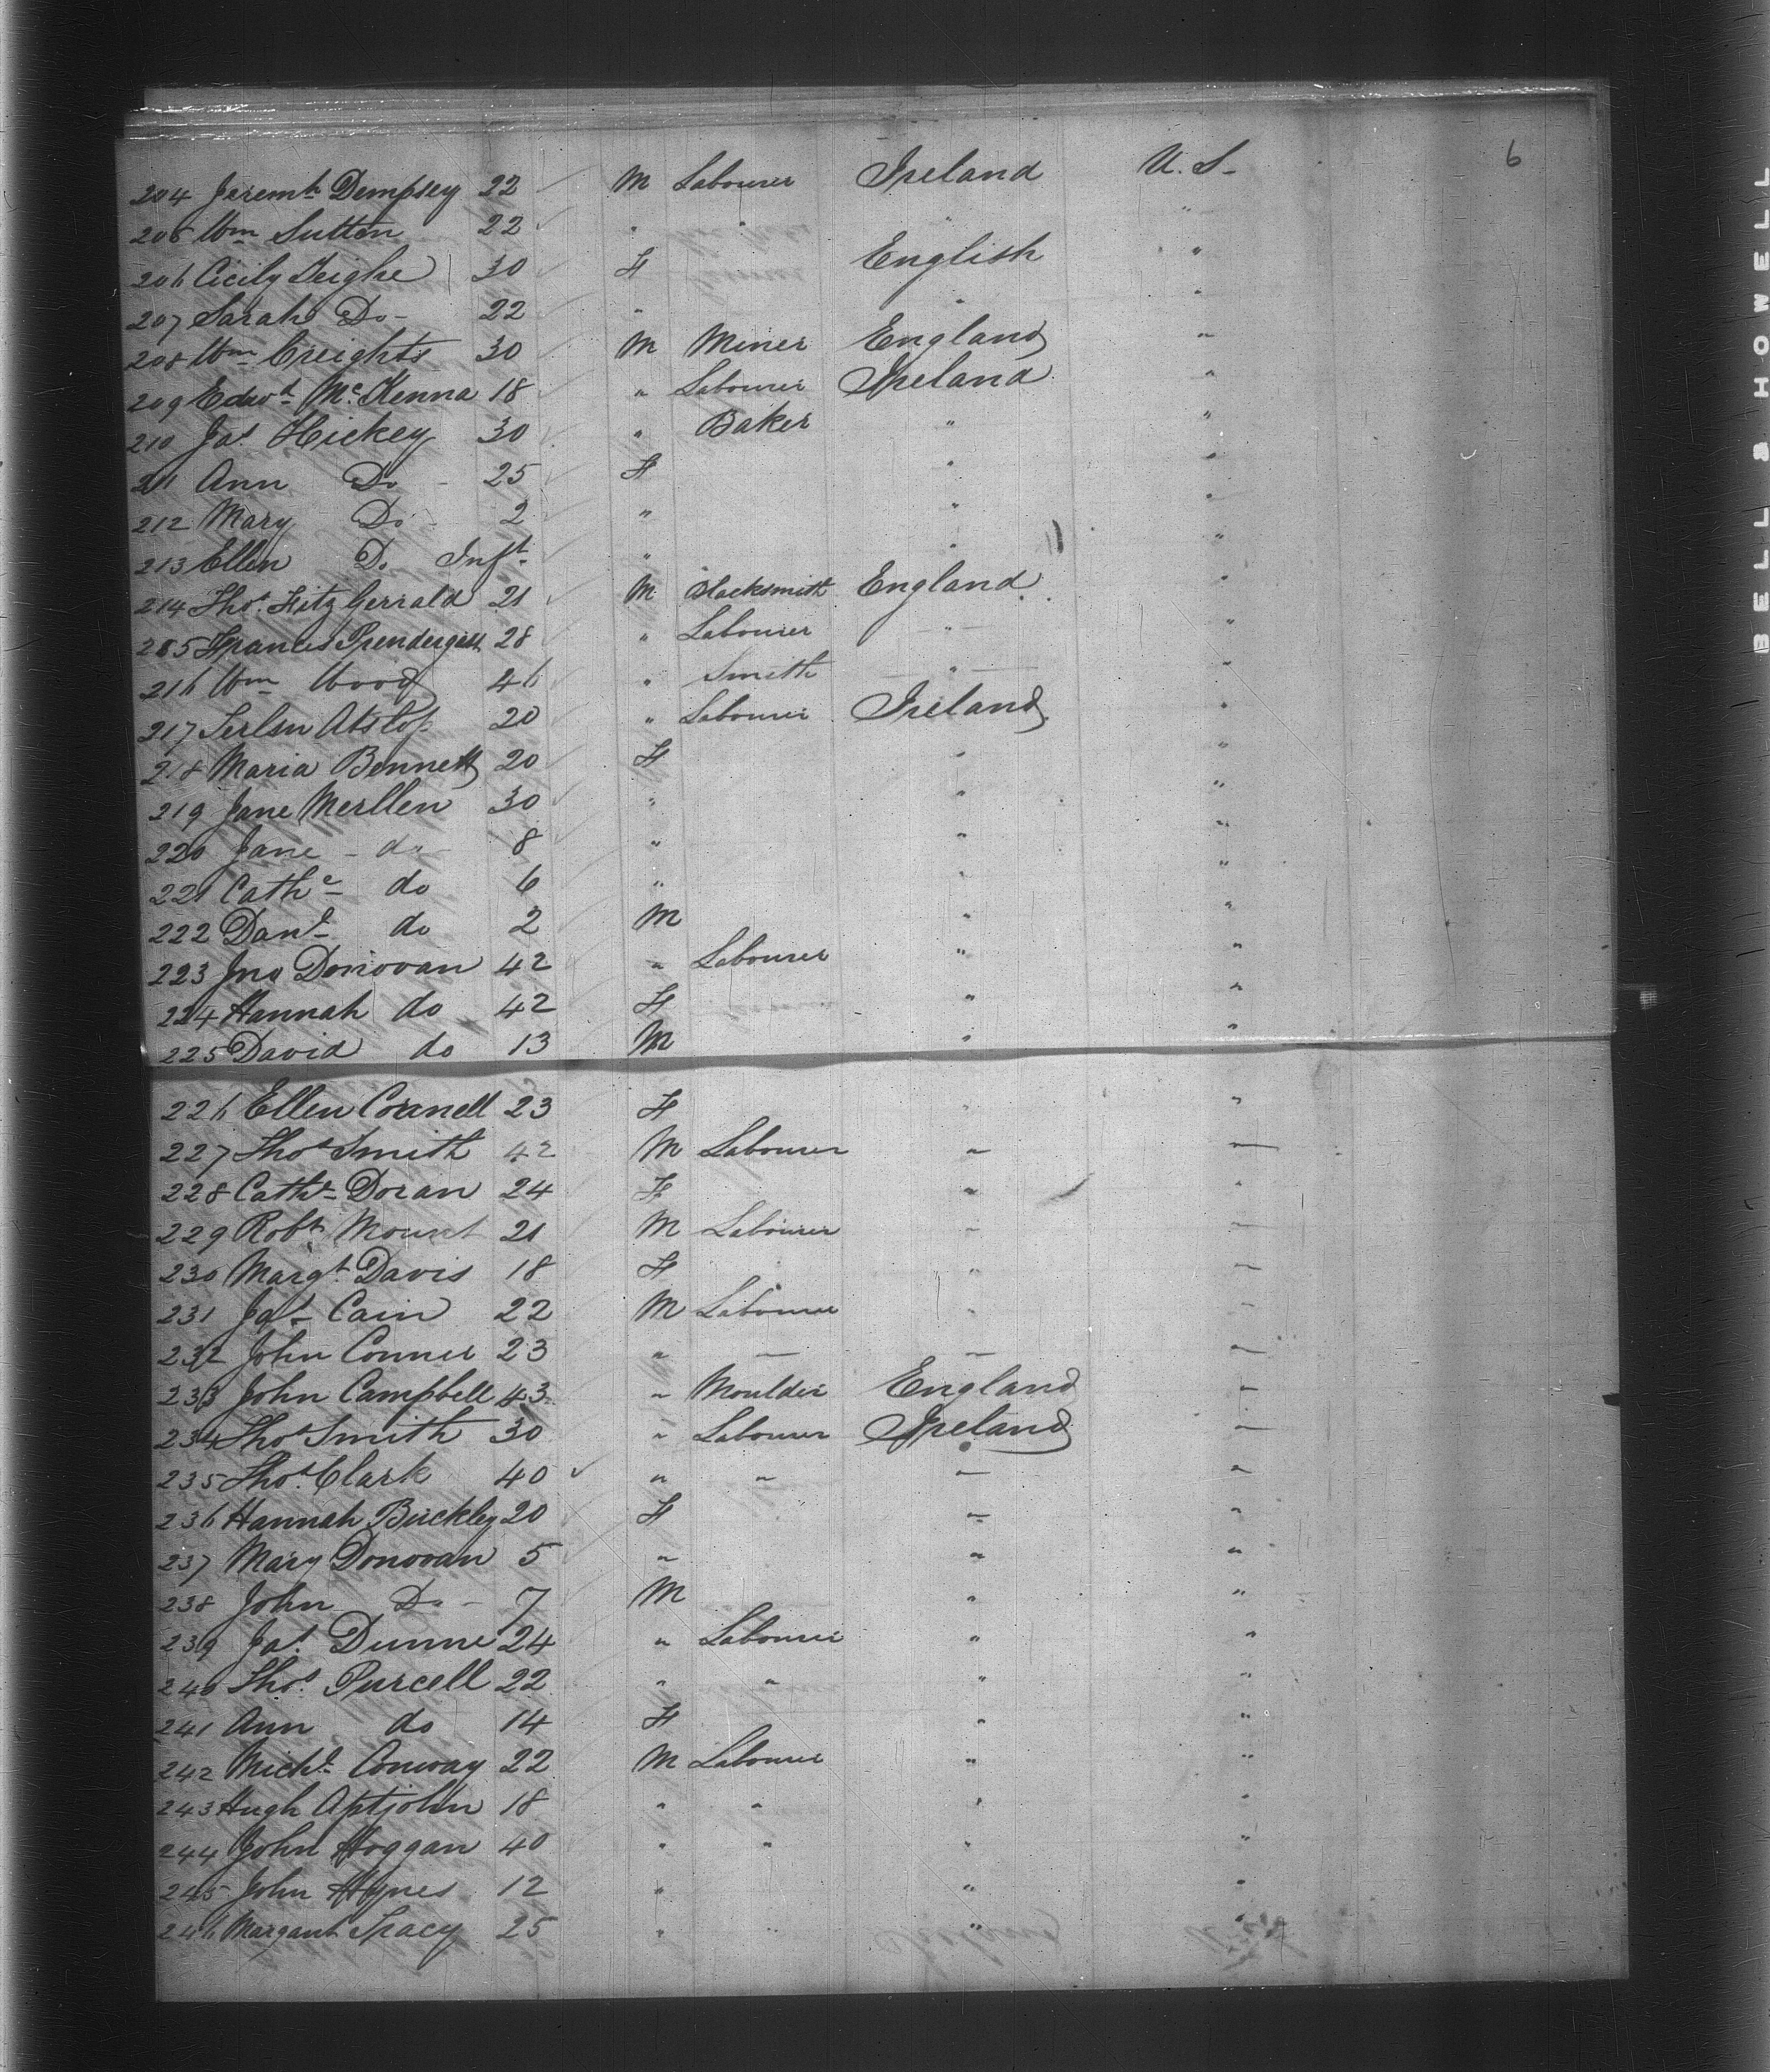 6
204 Jeremh Dempsey 22 M Labourer Ireland U. S.
205 Wm Sutton 22 " " " "
206 Cicily Teighe 30 F English "
207 Sarah Do 22 " " "
208 Wm Creights 30 M Miner England "
209 Edwd McKenna 18 " Labourer Ireland "
210 Jas Hickey 30 " Baker " "
211 Ann Do 25 F " "
212 Mary Do 2 " " "
213 Ellen Do Inft " " "
214 Thos Fitz Gerrald 21 M Blacksmith England "
215 Francis Prendergast 28 " Labourer " "
216 Wm Wood 46 " Smith " "
217 20 " Labourer Ireland "
218 Maria Bennett 20 F " "
219 Jane Merllen 30 " " "
220 Jane do 8 " " "
221 Cathe do 6 " " "
222 Danl do 2 M " "
223 Jno Donovan 42 " Labourer " "
224 Hannah do 42 F " "
225 David do 13 M " "
226 Ellen Connell 23 F " "
227 Thos Smith 42 M Labourer " "
228 Cathe Doran 24 F " "
229 Robt Mount 21 M Labourer " "
230 Margt Davis 18 F " "
231 Jas Cain 22 M Labourer " "
232 John Conner 23 " " " "
233 John Campbell 43 " Moulder England "
234 Thos Smith 30 " Labourer Ireland "
235 Thos Clark 40 " " " "
236 Hannah Buckley 20 F " "
237 Mary Donovan 5 " " "
238 John Do 7 M " "
239 Jas Dunne 24 " Labourer " "
240 Thos Purcell 22 " " " "
241 Ann do 14 F " "
242 Michl Conway 22 M Labourer " "
243 Hugh Aptjohn 18 " " " "
244 John Hoggan 40 " " " "
245 John Hynes 12 " " "
246 Margaret Tracy 25 " " " "
BELL & HOWELL